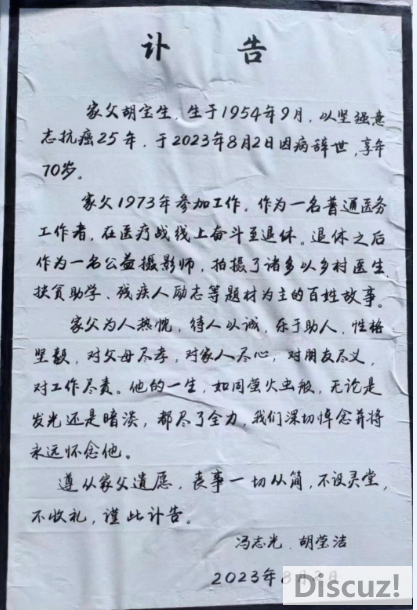 讣 告
家父胡宝生，生于1954年9月，以坚强意
志抗癌25年，于2023年8月2日因病辞世，享年
70岁。
家父1973年参加工作，作为一名普通医务
工作者，在医疗战线上奋斗至退休。退休之后
作为一名公益摄影师，拍摄了诸多以乡村医生
扶贫助学、残疾人励志等题材为主的百姓故事。
家父为人热忱，待人以诚，乐于助人，性格
坚毅，对父母尽孝，对家人尽心，对朋友尽义，
对工作尽责。他的一生，如同萤火虫般，无论是
发光还是暗淡，都尽了全力，我们深切悼念并将
永远怀念他。
遵从家父遗愿，丧事一切从简，不设灵堂，
不收礼，谨此讣告。
冯志光、胡莹洁
2023年8月 日
Discuz!